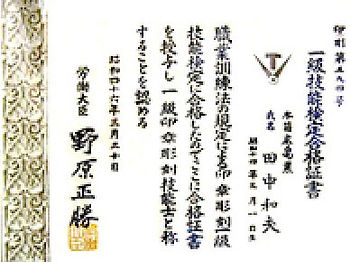 印彫第五九四号
一級技能検定合格証書
本籍 広島県
氏名 田中和夫
昭和十四年三月一日生
職業訓練法の規定による印章彫刻一級
技能検定に合格したのでここに合格証書
を授与し一級印章彫刻技能士と称
することを認める
昭和四十六年三月三十日
労働大臣 野原正勝